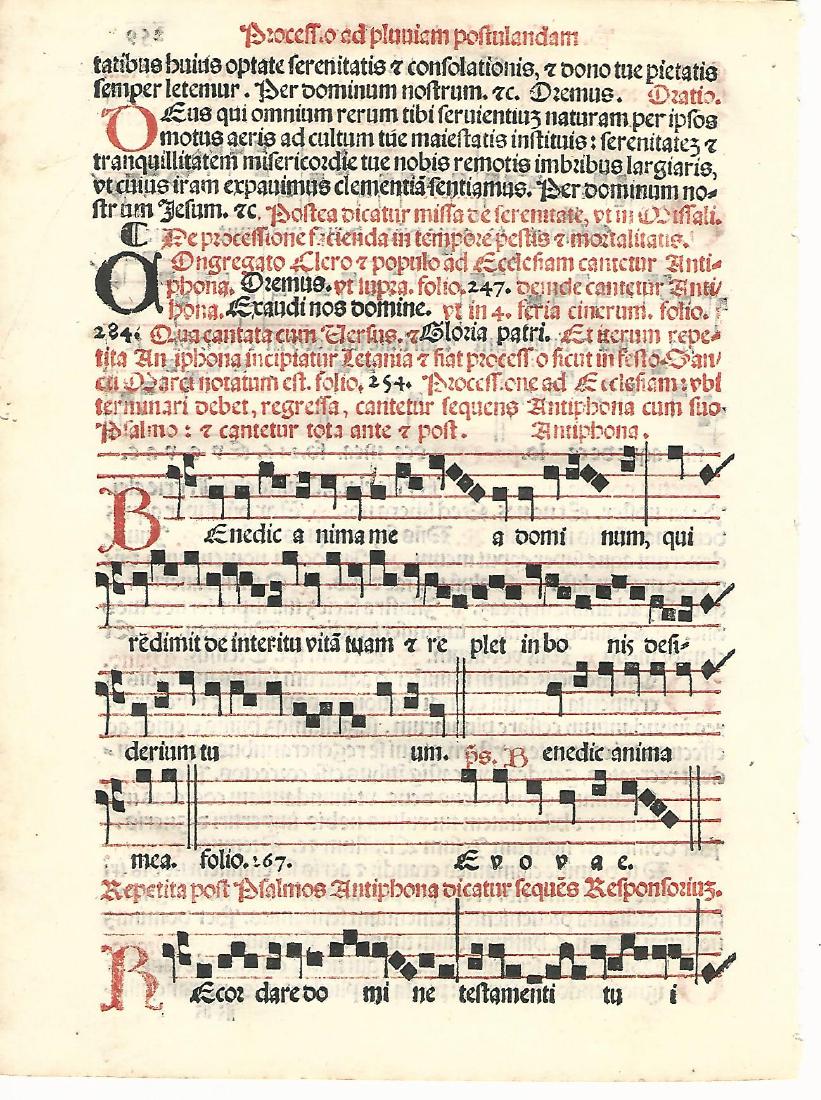 Processio ad pluuiam postulandam
tatibus huius optate serenitatis ⁊ consolationis, ⁊ dono tue pietatis
semper letemur. Per dominum nostrum. ⁊c. Oremus. Oratio.
DEus qui omnium rerum tibi seruientiuꝫ naturam per ipsos
motus aeris ad cultum tue maiestatis instituis: serenitateꝫ ⁊
tranquillitatem misericordie tue nobis remotis imbribus largiaris,
vt cuius iram expauimus clementiã sentiamus. Per dominum no-
strum Jesum. ⁊c. Postea dicatur missa de serenitate, vt in Missali.
¶ De processione facienda in tempore pestis ⁊ mortalitatis.
COngregato Clero ⁊ populo ad Ecclesiam cantetur Anti-
phona. Oremus. vt supra. folio. 247. deinde cantetur Anti
phona. Exaudi nos domine. vt in 4. feria cinerum. folio.
284. Qua cantata cum Uersus. ⁊ Gloria patri. Et iterum repe-
tita Antiphona incipiatur Letania ⁊ fiat processio sicut in festo San-
cti Marci notatum est. folio. 254. Processione ad Ecclesiam: vbi
terminari debet, regressa, cantetur sequens Antiphona cum suo
Psalmo: ⁊ cantetur tota ante ⁊ post. Antiphona.
BEnedic a nima me a domi num, qui
rẽdimit de interitu vitã tuam ⁊ re plet in bo nis desi-
derium tu um. p̃s. Benedic anima
mea. folio. 267. E v o v a e.
Repetita post Psalmos Antiphona dicatur sequẽs Responsoriuꝫ.
REcor dare do mi ne testamenti tu i